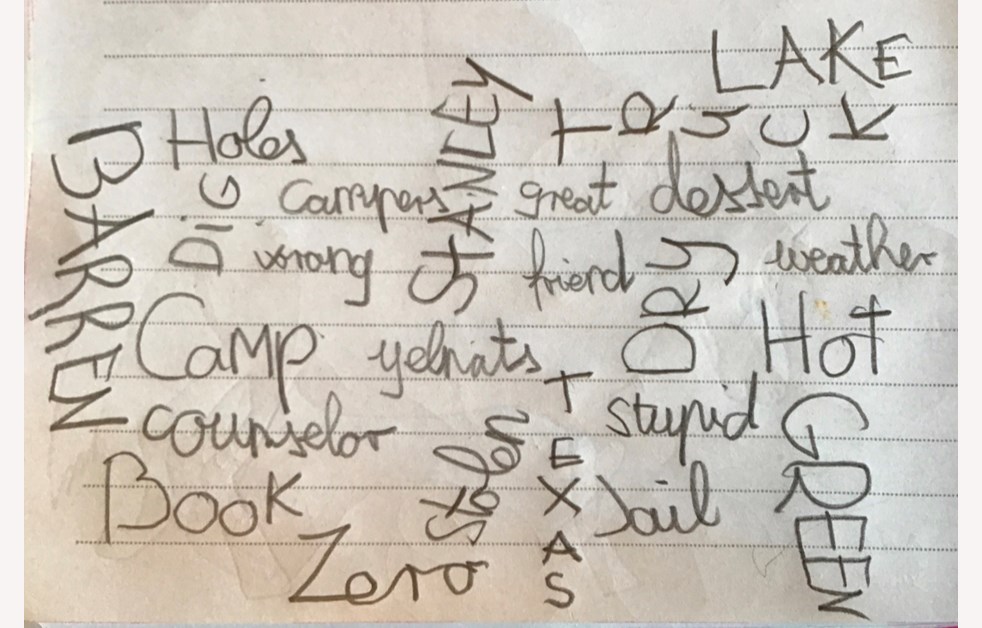 LAKE
BARREN
Holes
STANLEY
TRUCK
DIG
Campers
great
dessert
wrong
friend
DRY
weather
Camp
yelnats
Hot
counselor
stolen
TEXAS
stupid
GREEN
Book
Jail
Zero